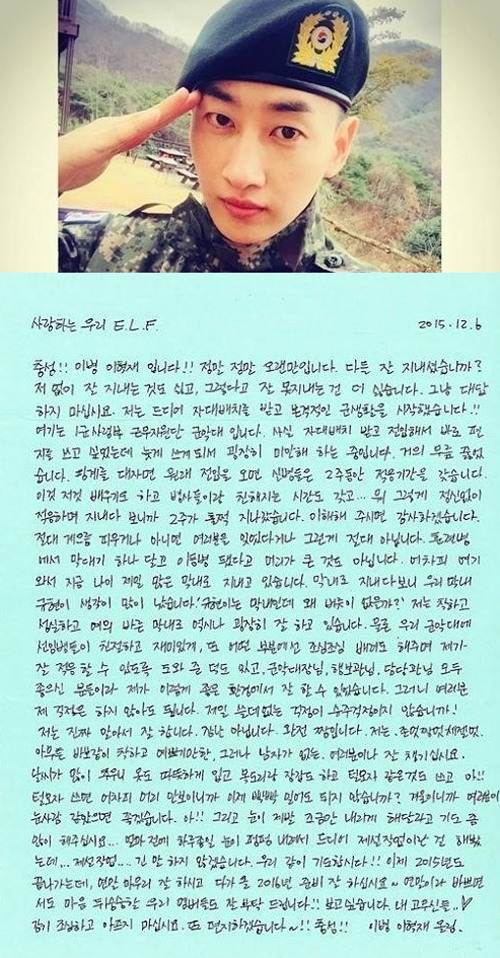 사랑하는 우리 E.L.F.
2015.12.6
충성!! 이병 이혁재 입니다!! 정말 정말 오랜만입니다. 다들 잘 지내셨습니까?
저 없이 잘 지내는 것도 싫고, 그렇다고 잘 못지내는 건 더 싫습니다. 그냥 대답
하지 마십시요. 저는 드디어 자대배치를 받고 본격적인 군생활을 시작했습니다!!
여기는 1군사령부 근무지원단 군악대 입니다. 사실 자대배치 받고 전입해서 바로 편
지를 쓰고 싶었는데 늦게 쓰게되서 굉장히 미안해 하는 중입니다. 거의 무릎 꿇었
습니다. 핑계를 대자면 원래 전입을 오면 신병들은 2주동안 적응기간을 갖습니다.
이것 저것 배우기도 하고 병사들이랑 친해지는 시간도 갖고... 뭐 그렇게 정신없이
적응하며 지내다 보니까 2주가 훌쩍 지나갔습니다. 이해해 주시면 감사하겠습니다.
절대 게으름 피우거나 아니면 여러분을 잊었다거나 그런게 절대 아닙니다. 훈련병
에서 막대기 하나 달고 이등병 됐다고 머리가 큰 것도 아닙니다. 어차피 여기
와서 지금 나이 제일 많은 막내로 지내고 있습니다. 막내로 지내다보니 우리 막내
규현이 생각이 많이 났습니다. '규현이는 막내인데 왜 버릇이 없을까?' 저는 착하고
성실하고 예의 바른 막내로 역시나 굉장히 잘 하고 있습니다. 물론 우리 군악대에
선임병들이 친절하고 재미있게, 또 어떤 부분에선 조심조심 배려도 해주며 제가
잘 적응 할 수 있도록 도와 준 덕도 있고, 군악대장님, 행보관님, 담당관님 모두
좋으신 분들이라 제가 이렇게 좋은 환경에서 잘 할 수 있었습니다. 그러니 여러분
제 걱정은 하지 않아도 됩니다. 제일 쓸데없는 걱정이 슈주걱정이지 않습니까!
저는 진짜 알아서 잘 합니다. 장난 아닙니다. 완전 짱입니다. 저는.
아무튼 바보같이 착하고 예쁘기만한, 그러나 남자가 없는. 여러분이나 잘 챙기십시요.
날씨가 많이 추우니 옷도 따뜻하게 입고 목도리랑 장갑도 하고 털모자 같은것도 쓰고 아!!
털모자 쓰면 어차피 머리 안보이니까 이제 빡빡 밀어도 되지 않습니까? 겨울이니까 여러분이
눈사람 같았으면 좋겠습니다. 아!! 그리고 눈이 제발 조금만 내리게 해달라고 기도 좀
많이 해주십시요... 얼마전에 하루종일 눈이 펑펑 내려서 드디어 제설작업이란 건 해봤
는데,,, 제설작업.... 긴 말 하지 않겠습니다. 우리 같이 기도합시다!! 이제 2015년도
끝나가는데, 연말 마무리 잘 하시고 다가올 2016년 준비 잘 하십시요~ 연말이라 바쁘면
서도 마음 뒤숭숭한 우리 멤버들도 잘 부탁 드립니다!! 보고싶습니다. 내 고우신분들..♥
감기 조심하고 아프지 마십시요. 또 편지하겠습니다~!! 충성!! 이병 이혁재 올림.